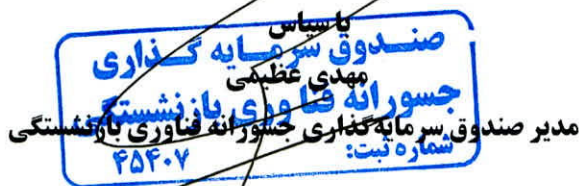 با سپاس
مهدی عظیمی
مدیر صندوق سرمایه‌گذاری جسورانه فناوری بازنشستگی
صندوق سرمایه گذاری
جسورانه فناوری بازنشستگی
شماره ثبت:
۴۵۴۰۷